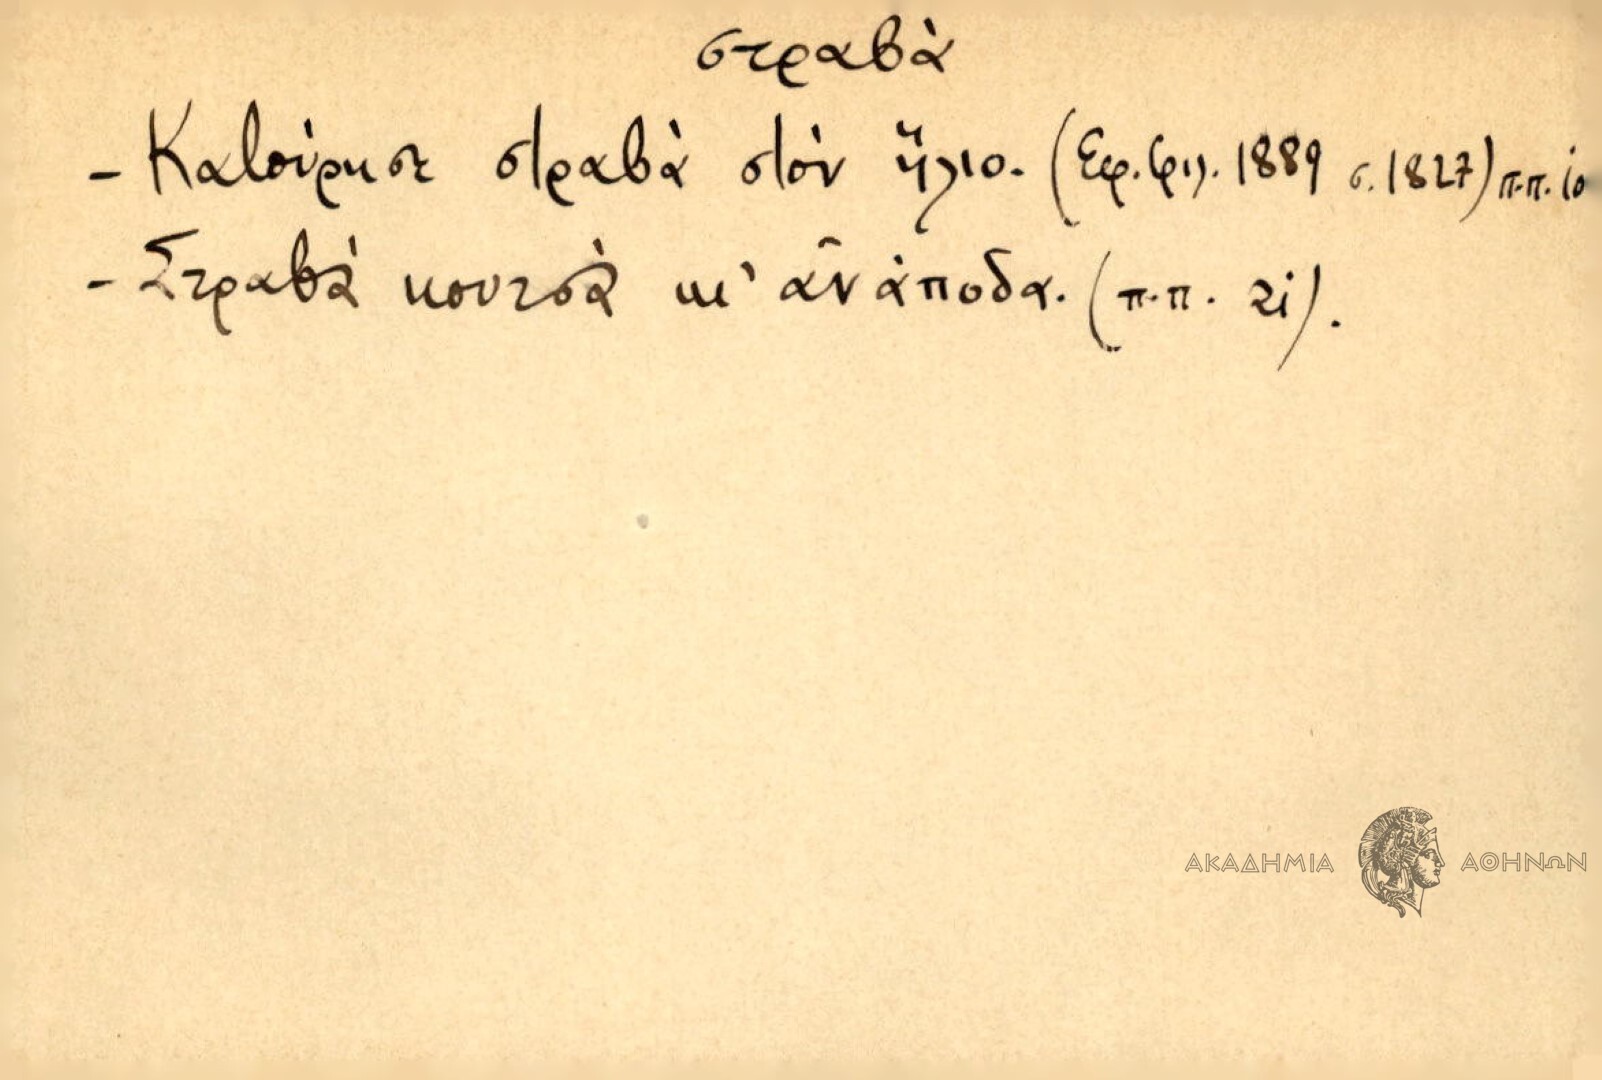 στραβὰ
- Κατούρησε στραβὰ στὸν ἥλιο. (Εφ. Φιλ. 1889 σ. 1827) π.π.
- Στραβὰ κουτσὰ κι' ἀνάποδα. (π.π. 2i).
ΑΚΑΔΗΜΙΑ ΑΘΗΝΩΝ